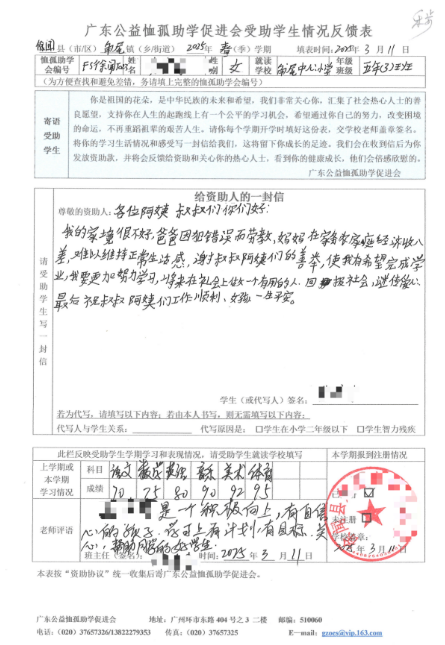 广东公益恤孤助学促进会受助学生情况反馈表
县（市/区） 龟尾 镇（乡/街道） 2025年 春（季）学期 填表时间: 2025年 3 月 11 日
恤孤助学会编号
姓名
性别 女
就读学校 中心小学
年级班级 五年(3)班
（为方便查找和避免差错，务请填上完整的恤孤助学会编号）
寄语受助学生
你是祖国的花朵，是中华民族的未来和希望，我们非常关心你，汇集了社会热心人士的善
良愿望，支持你在人生的起跑线上有一个公平的学习机会，希望通过你自己的努力，改变困境
的命运，不再重蹈祖辈的艰苦人生。请你每个学期开学时填好这份表，交学校老师盖章签名，
将你的学习生活情况和感受写一封信给我们，这将留下你成长的足迹，我们会在收到信后为你
发放资助款，并将会反馈给资助和关心你的热心人士，看到你的健康成长，他们会倍感欣慰的。
广东公益恤孤助学促进会
请受助学生写一封信
给资助人的一封信
尊敬的资助人: 各位阿姨 叔叔们你们好:
我的家境很不好, 爸爸因犯错误而劳教, 妈妈在家务农家庭经济收入
差, 难以维持正常生活, 谢谢叔叔阿姨们的善举, 使我有希望完成学
业, 我要更加努力学习, 将来在社会上做一个有用的人, 回报社会, 传递爱心
最后祝叔叔阿姨们工作顺利, 好人一生平安。
学生（或代写人）签名:
若为代写，请填写以下内容；若由本人书写，则无需填写以下内容:
代写人与学生关系:
代写原因是: □学生在小学二年级以下 □学生智力残疾
此栏反映受助学生学期学习和表现情况，请受助学生就读学校填写
本学期报到注册情况
上学期或本学期学习情况
科目 语文 数学 英语 音乐 美术 体育
成绩 70 75 80 90 92 95
老师评语
是一个积极向上, 有自信
心的孩子, 学习上有计划, 有目标, 关
心, 帮助同学的好学生.
班主任 时间: 2025 年 3 月 11 日
未注册
3月11日
本表按“资助协议”统一收集后寄广东公益恤孤助学促进会。
广东公益恤孤助学促进会 地址: 广州环市东路 404 号之 3 二楼 邮编: 510060
电话: (020) 37657326/13822279353 传真: (020) 37657325 E—mail: gzaes@vip.163.com